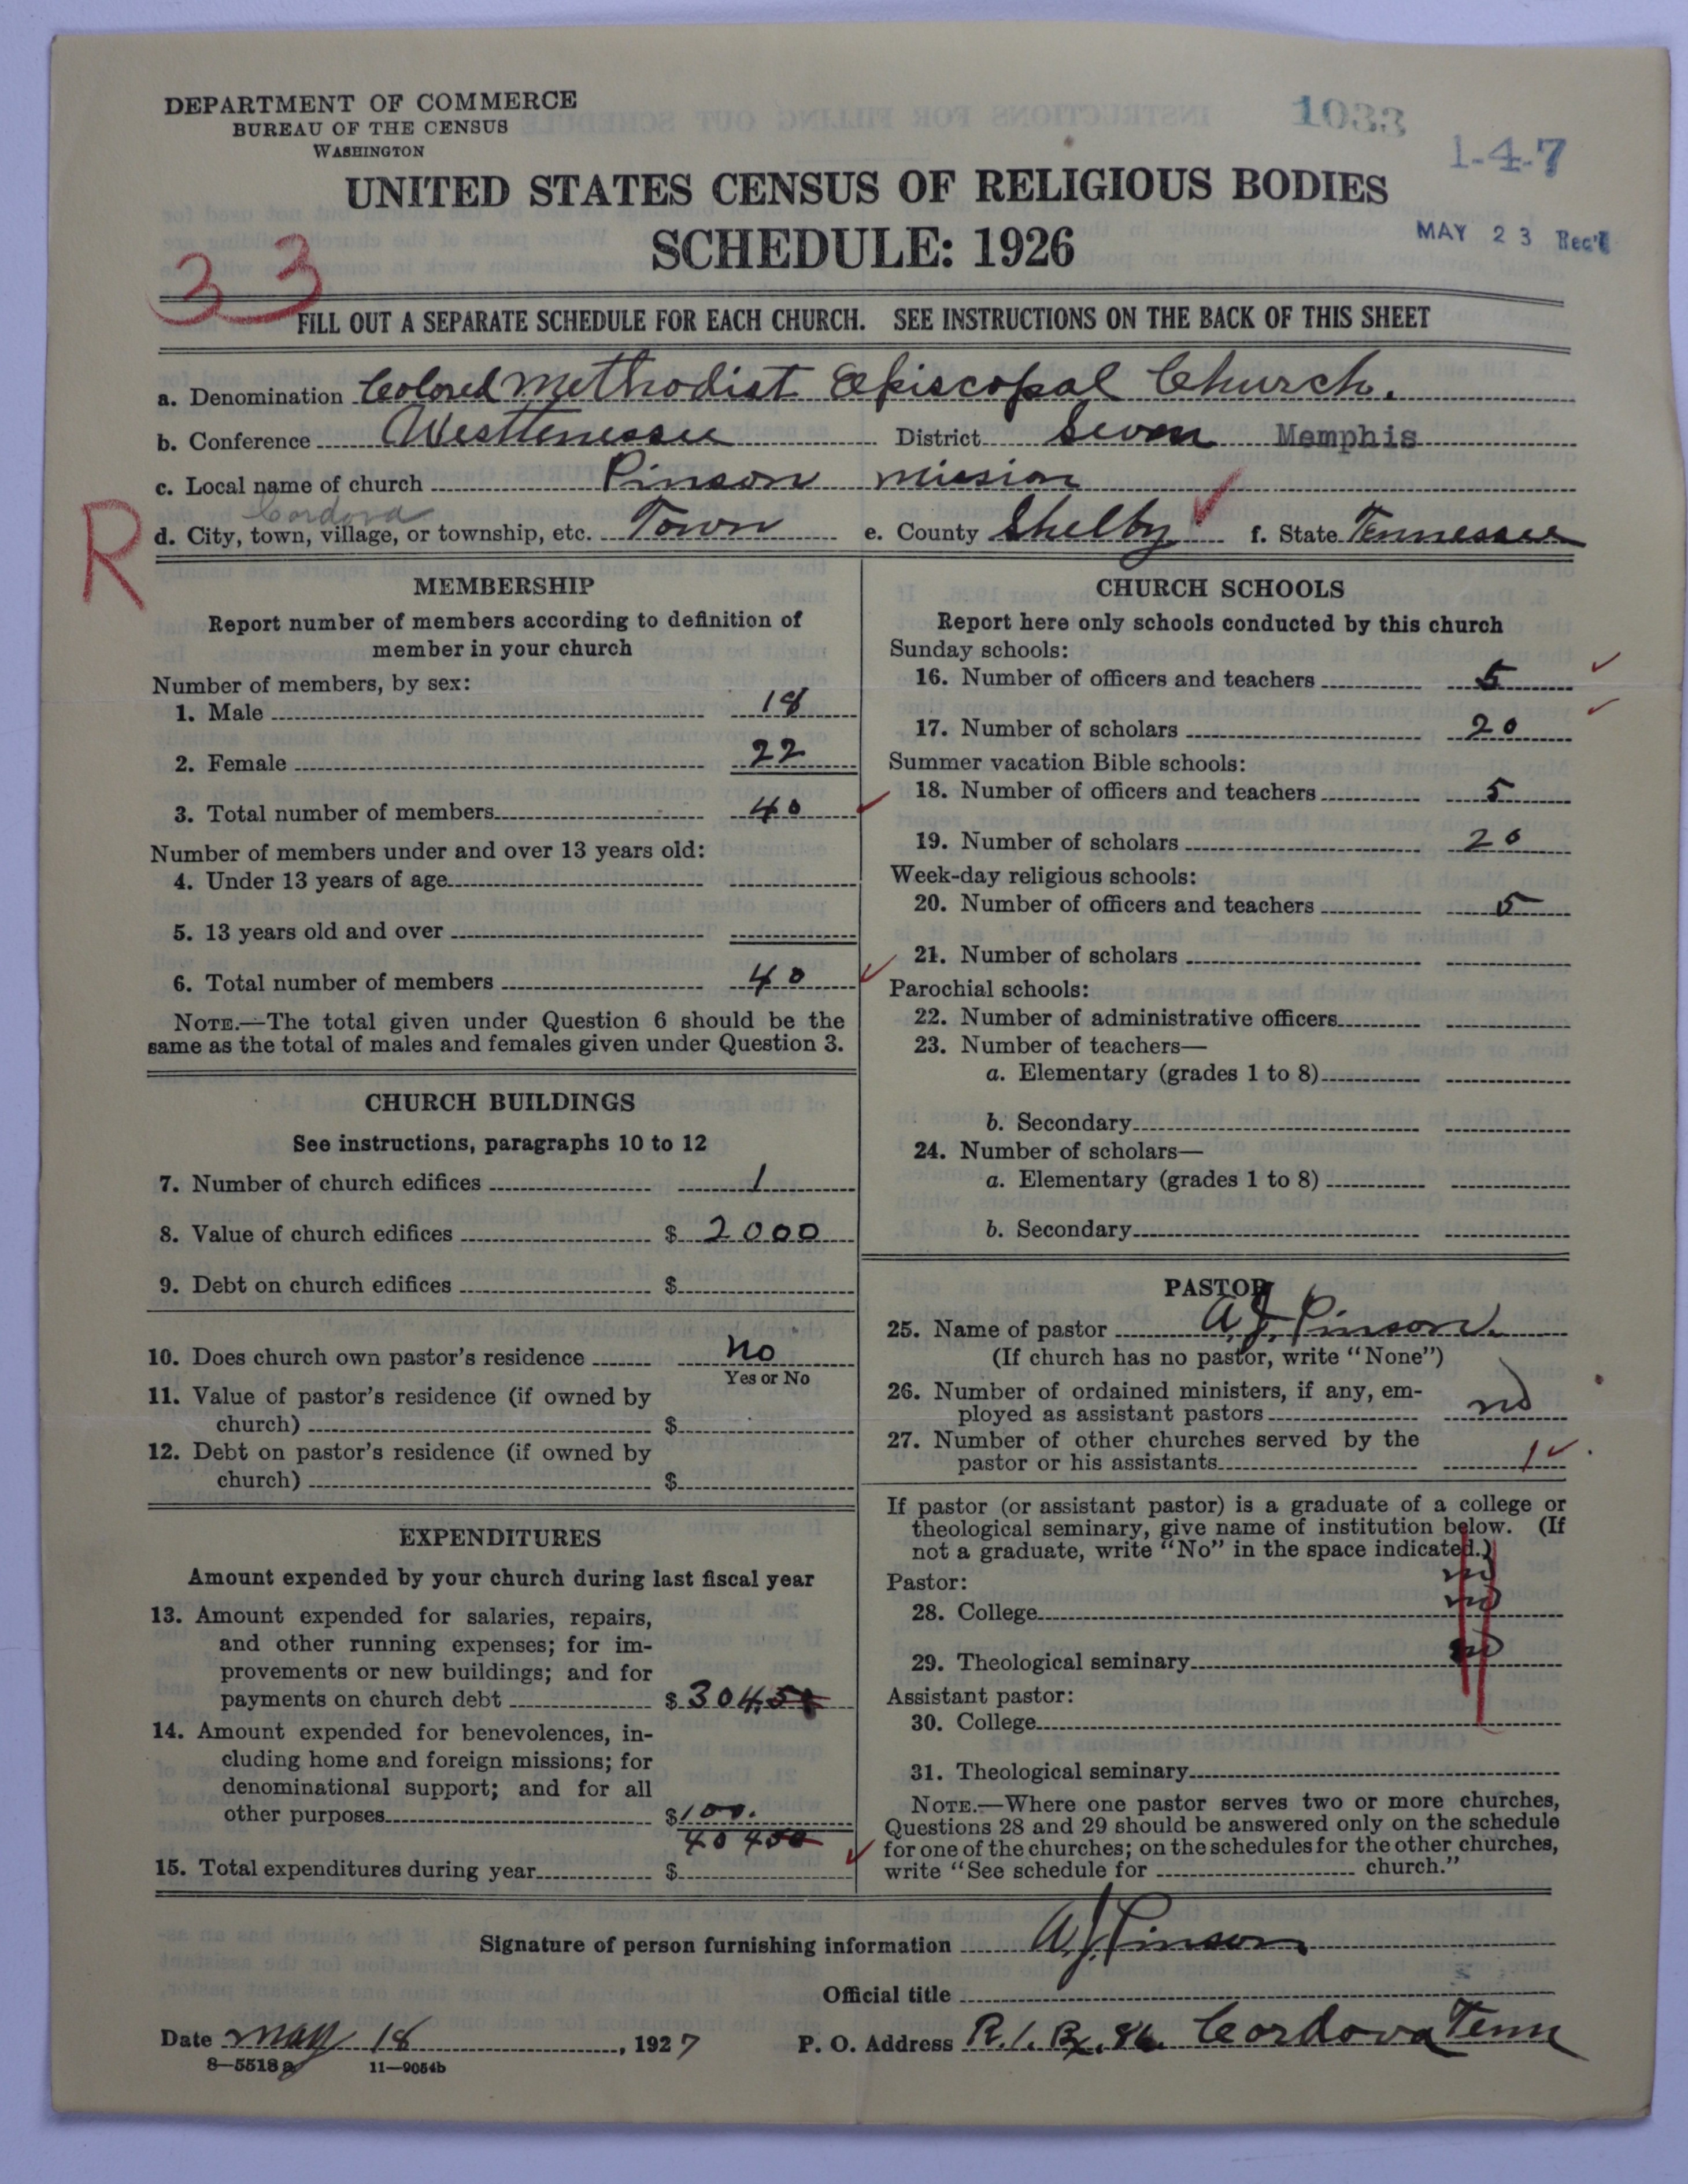 DEPARTMENT OF COMMERCE
BUREAU OF THE CENSUS
WASHINGTON
1033
1-4-7
UNITED STATES CENSUS OF RELIGIOUS BODIES
SCHEDULE: 1926
MAY 23 Rec'd
33
FILL OUT A SEPARATE SCHEDULE FOR EACH CHURCH. SEE INSTRUCTIONS ON THE BACK OF THIS SHEET
a. Denomination Colored Methodist Episcopal Church.
b. Conference Westtenessee District Seven Memphis
c. Local name of church Pinson mission
Cordova
R
d. City, town, village, or township, etc. Town e. County Shelby f. State Tennessee
MEMBERSHIP
Report number of members according to definition of
member in your church
Number of members, by sex:
1. Male 18
2. Female 22
3. Total number of members 40
Number of members under and over 13 years old:
4. Under 13 years of age
5. 13 years old and over
6. Total number of members 40
NOTE.—The total given under Question 6 should be the
same as the total of males and females given under Question 3.
CHURCH BUILDINGS
See instructions, paragraphs 10 to 12
7. Number of church edifices 1
8. Value of church edifices $ 2000
9. Debt on church edifices $
10. Does church own pastor's residence No
Yes or No
11. Value of pastor's residence (if owned by
church) $
12. Debt on pastor's residence (if owned by
church) $
EXPENDITURES
Amount expended by your church during last fiscal year
13. Amount expended for salaries, repairs,
and other running expenses; for im-
provements or new buildings; and for
payments on church debt $ 304
14. Amount expended for benevolences, in-
cluding home and foreign missions; for
denominational support; and for all
other purposes $ 100.
404 50
15. Total expenditures during year $
CHURCH SCHOOLS
Report here only schools conducted by this church
Sunday schools:
16. Number of officers and teachers 5
17. Number of scholars 20
Summer vacation Bible schools:
18. Number of officers and teachers 5
19. Number of scholars 20
Week-day religious schools:
20. Number of officers and teachers 5
21. Number of scholars
Parochial schools:
22. Number of administrative officers
23. Number of teachers—
a. Elementary (grades 1 to 8)
b. Secondary
24. Number of scholars—
a. Elementary (grades 1 to 8)
b. Secondary
PASTOR
25. Name of pastor A. J. Pinson.
(If church has no pastor, write "None")
26. Number of ordained ministers, if any, em-
ployed as assistant pastors no
27. Number of other churches served by the
pastor or his assistants 1
If pastor (or assistant pastor) is a graduate of a college or
theological seminary, give name of institution below. (If
not a graduate, write "No" in the space indicated.)
Pastor: no
28. College no
29. Theological seminary no
Assistant pastor:
30. College
31. Theological seminary
NOTE.—Where one pastor serves two or more churches,
Questions 28 and 29 should be answered only on the schedule
for one of the churches; on the schedules for the other churches,
write "See schedule for church."
Signature of person furnishing information A. J. Pinson
Official title
Date may 18, 1927 P. O. Address R. 1. Bx. 86. Cordova Tenn
8—5518a 11—9054b